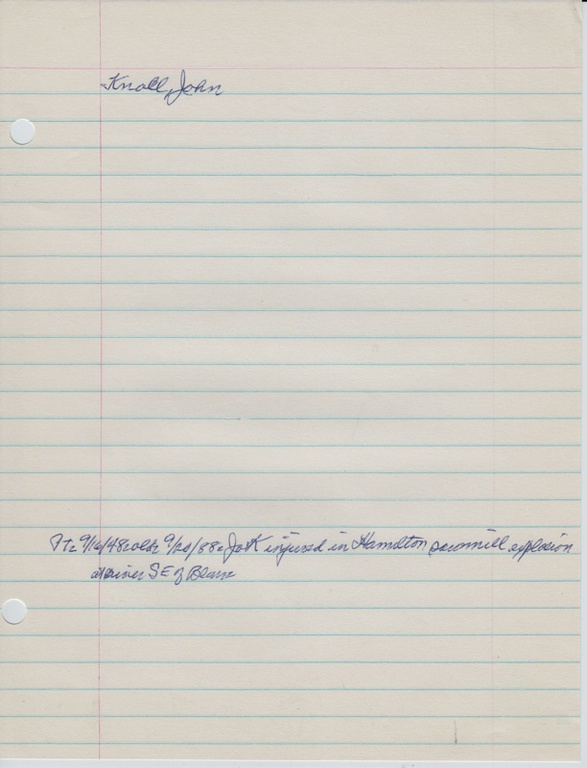 Knoll, John
9/16/48 9/20/88 injured in Hamilton sawmill explosion
at river SE of Blaine